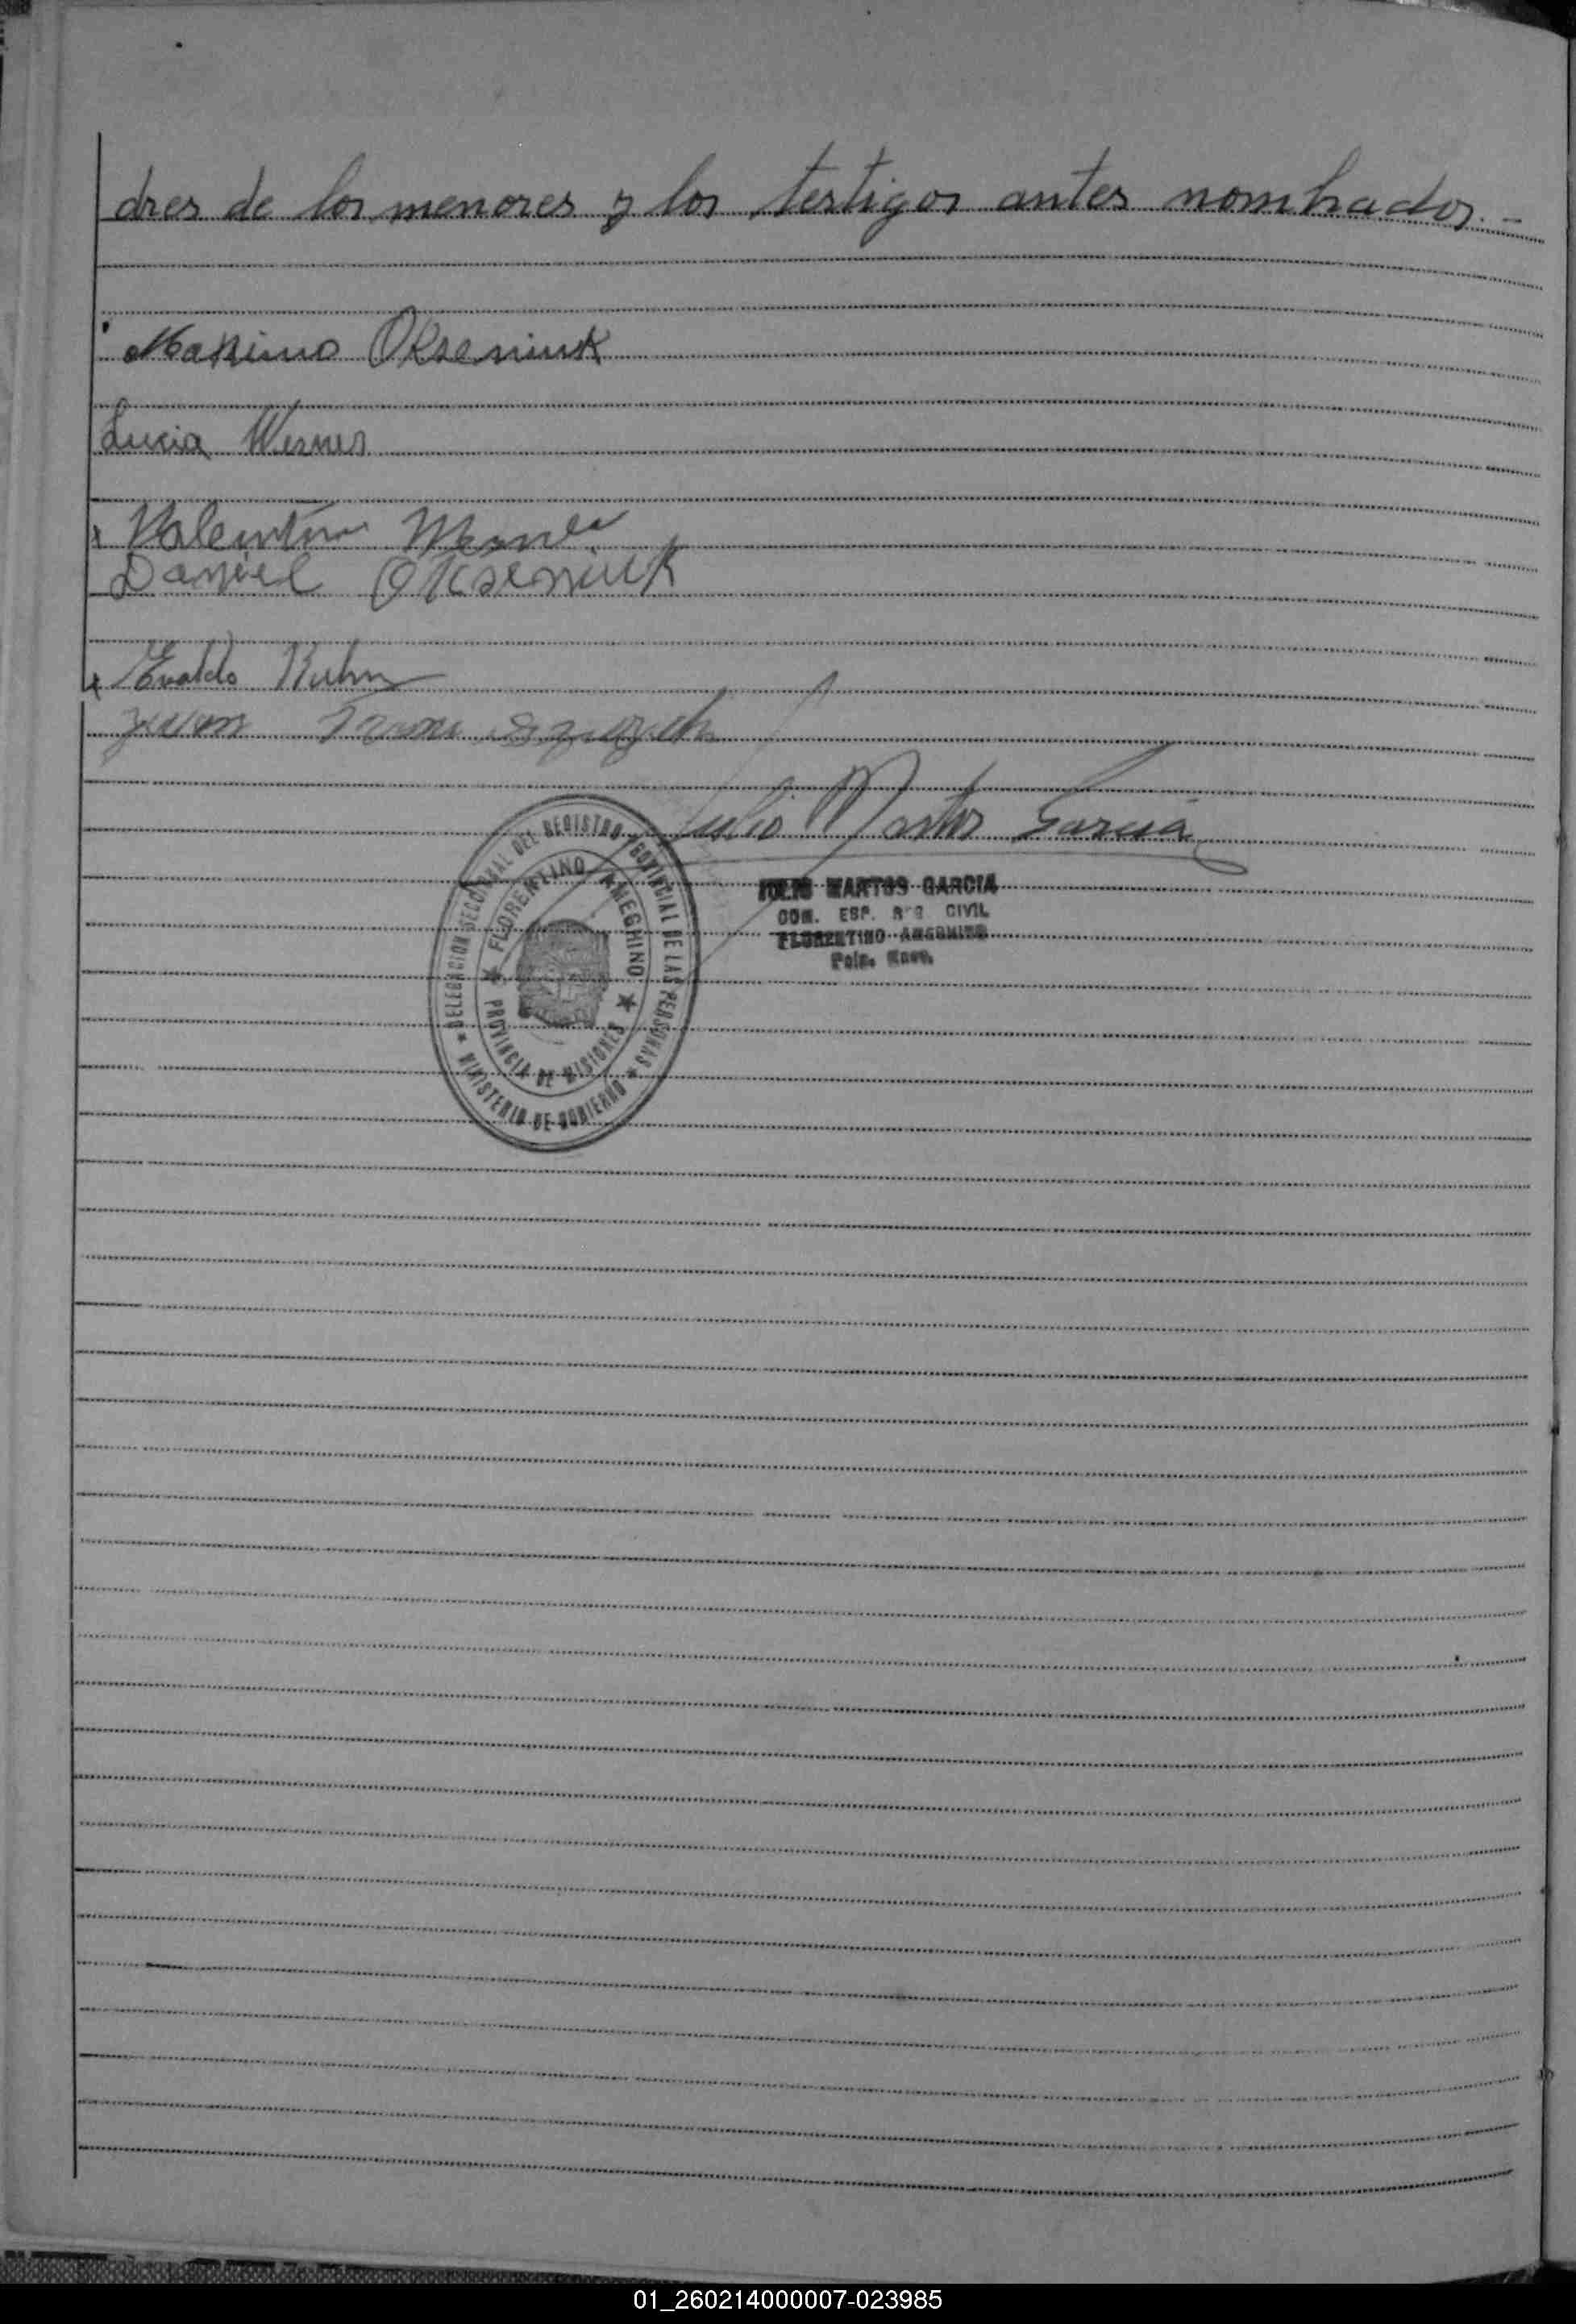 dres de los menores y los testigos antes nombrados.-
Maximo Okseniuk
Lucia Werner
x Valentin
Daniel Okseniuk
x Evaldo Kuhn
Juan
Julio Martos Garcia
DELEGACION SECCIONAL DEL REGISTRO PROVINCIAL DE LAS PERSONAS
★ MINISTERIO DE GOBIERNO ★
★ FLORENTINO AMEGHINO ★
PROVINCIA DE MISIONES
JULIO MARTOS GARCIA
COM. ESP. REG CIVIL
FLORENTINO AMEGHINO
01_260214000007-023985